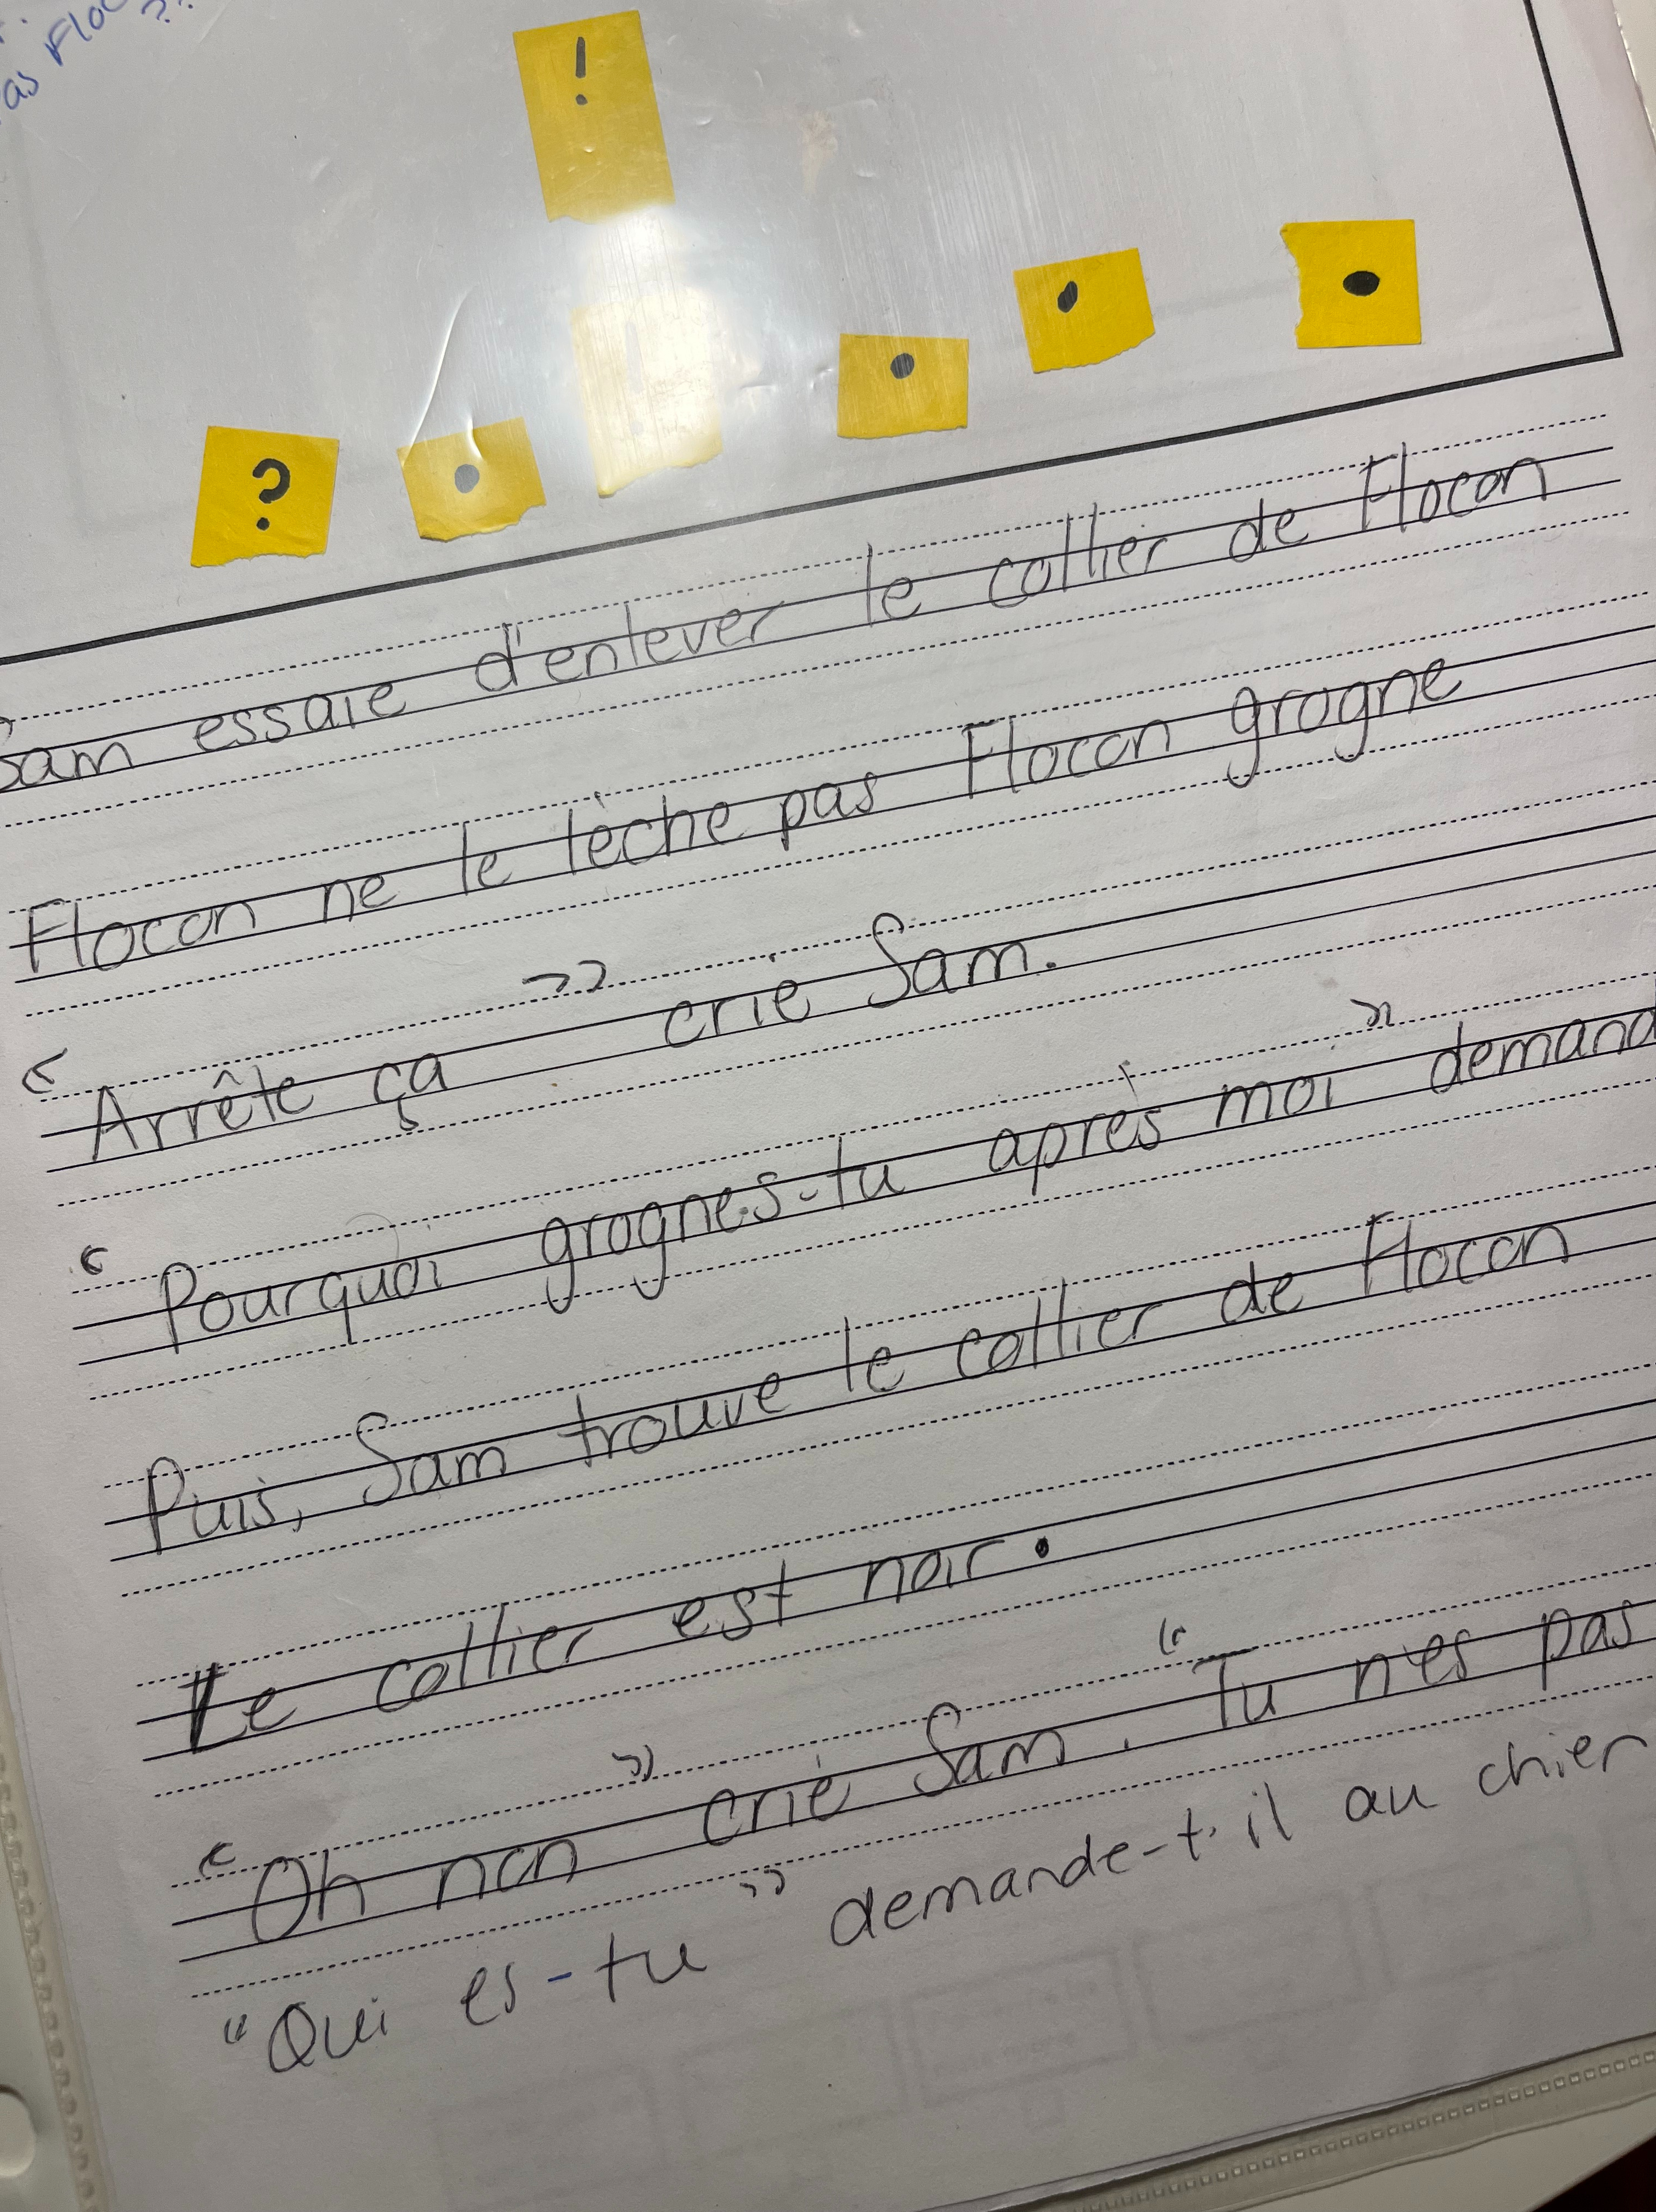 as Floc
??
!
? . ! . , .
Sam essaie d'enlever le collier de Flocon
Flocon ne le lèche pas Flocon grogne
« Arrête ça » crie Sam.
« Pourquoi grognes-tu après moi » demand
Puis, Sam trouve le collier de Flocon
Le collier est noir.
« Oh non » crie Sam. "Tu n'es pas
"Qui es-tu" demande-t-il au chien